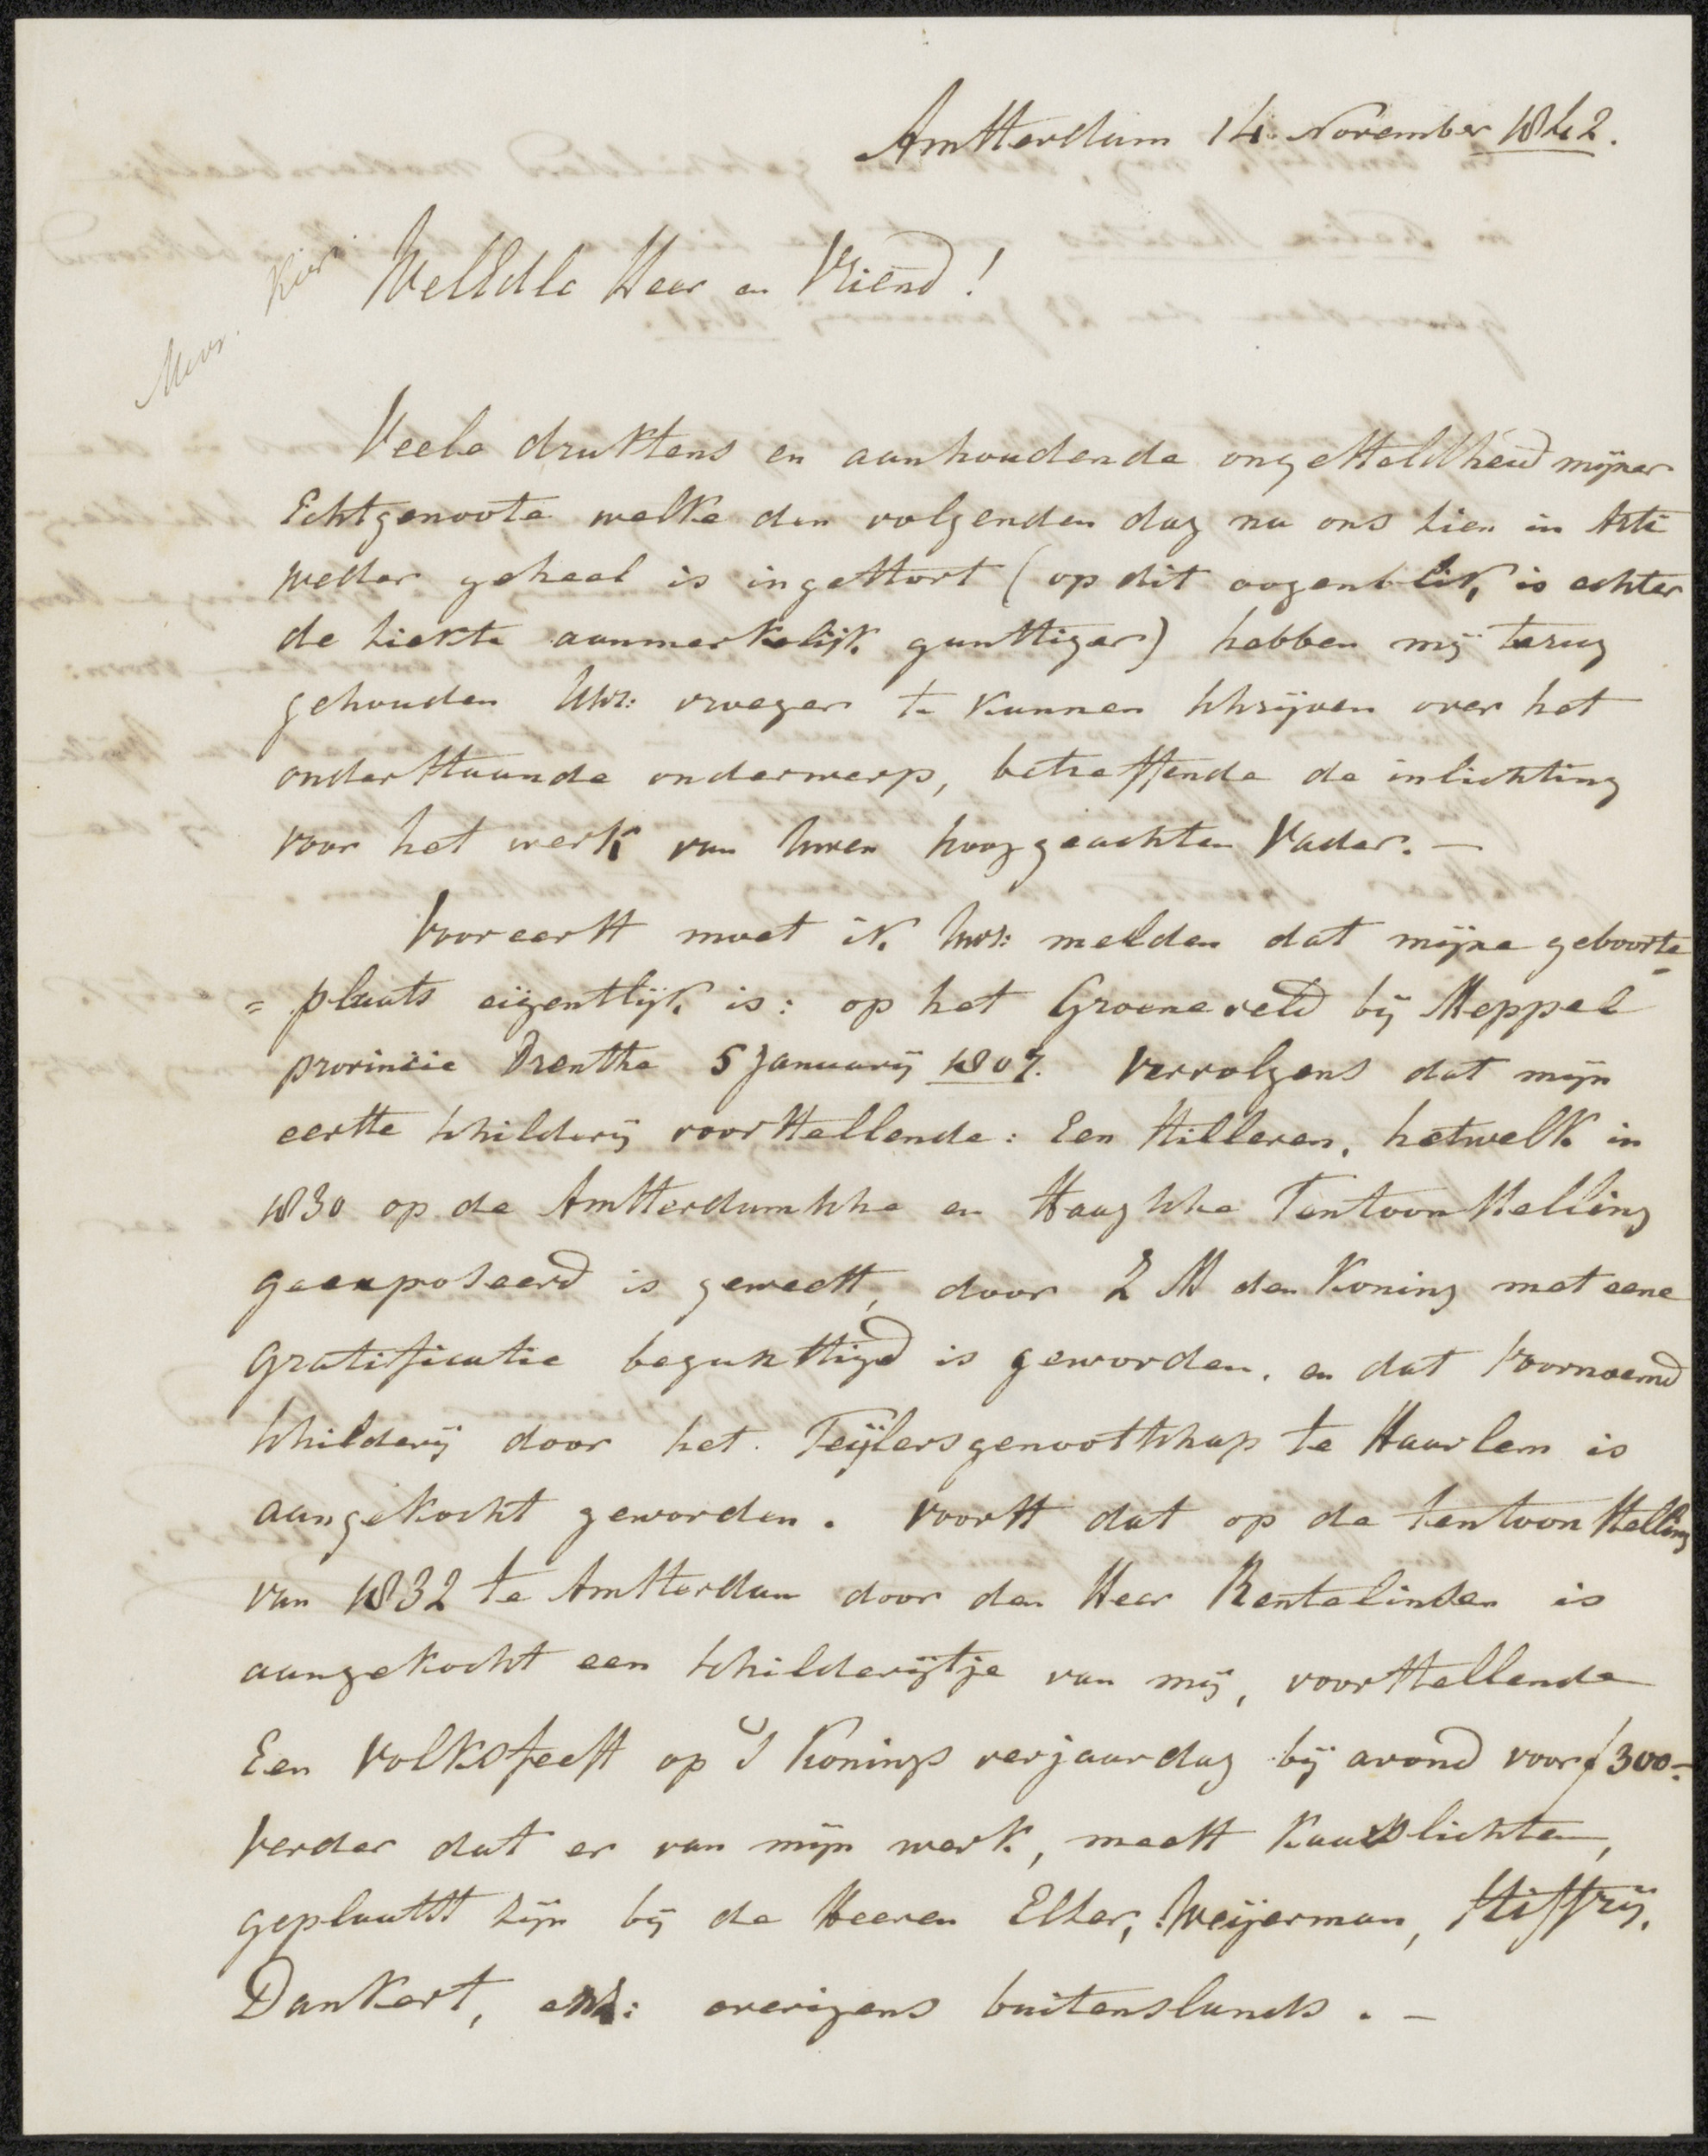 Amsterdam 14 November 1842.
WelEdle Heer en Vriend!
Veele druktens en aanhoudende ongesteldheid mijner
Echtgenoote welke den volgenden dag na ons zien in Arti
weder geheel is ingestort (op dit oogenblik, is echter
de ziekte aanmerkelijk gunstiger) hebben mij terug
gehouden UwE: vroeger te kunnen schrijven over het
onderstaande onderwerp, betreffende de inlichting
voor het werk van Uwen hooggeachten Vader. —
Vooreerst moet ik UwE: melden dat mijne geboorte
= plaats eigentlijk is: op het Groeneveld bij Meppel
provincie Drenthe 5 Januarij 1807. Vervolgens dat mijn
eerste schilderij voorstellende: Een Stilleven, hetwelk in
1830 op de Amsterdamsche en Haagsche Tentoonstelling
geexposeerd is geweest, door Z M den Koning met eene
gratificatie begunstigd is geworden, en dat voornoemd
schilderij door het Teijlersgenootschap te Haarlem is
aangekocht geworden. Voorst dat op de tentoonstelling
van 1832 te Amsterdam door den Heer Rentelinden is
aangekocht een schilderijtje van mij, voorstellende
Een Volksfeest op 's Konings verjaardag bij avond voor ƒ 300-
Verder dat er van mijn werk, meest Kaarslichten,
geplaatst zijn bij de Heeren Elser, Weijerman,
Dankert, enz: overigens buitenslands. —